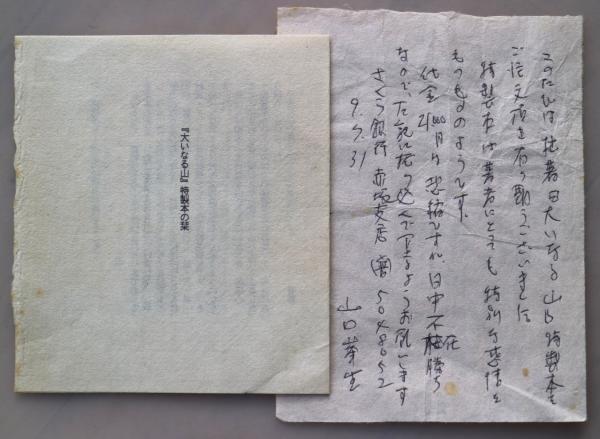 『大いなる山』特製本の栞
このたびは拙著『大いなる山』特製本を
ご注文頂き有り難うございました
特製本は著者にとっても特別な感情を
もつもののようです。
なので、左記に振り込んで下さるようお願いします
さくら銀行 赤坂支店 (普)5048652
9.7.31
山口 生